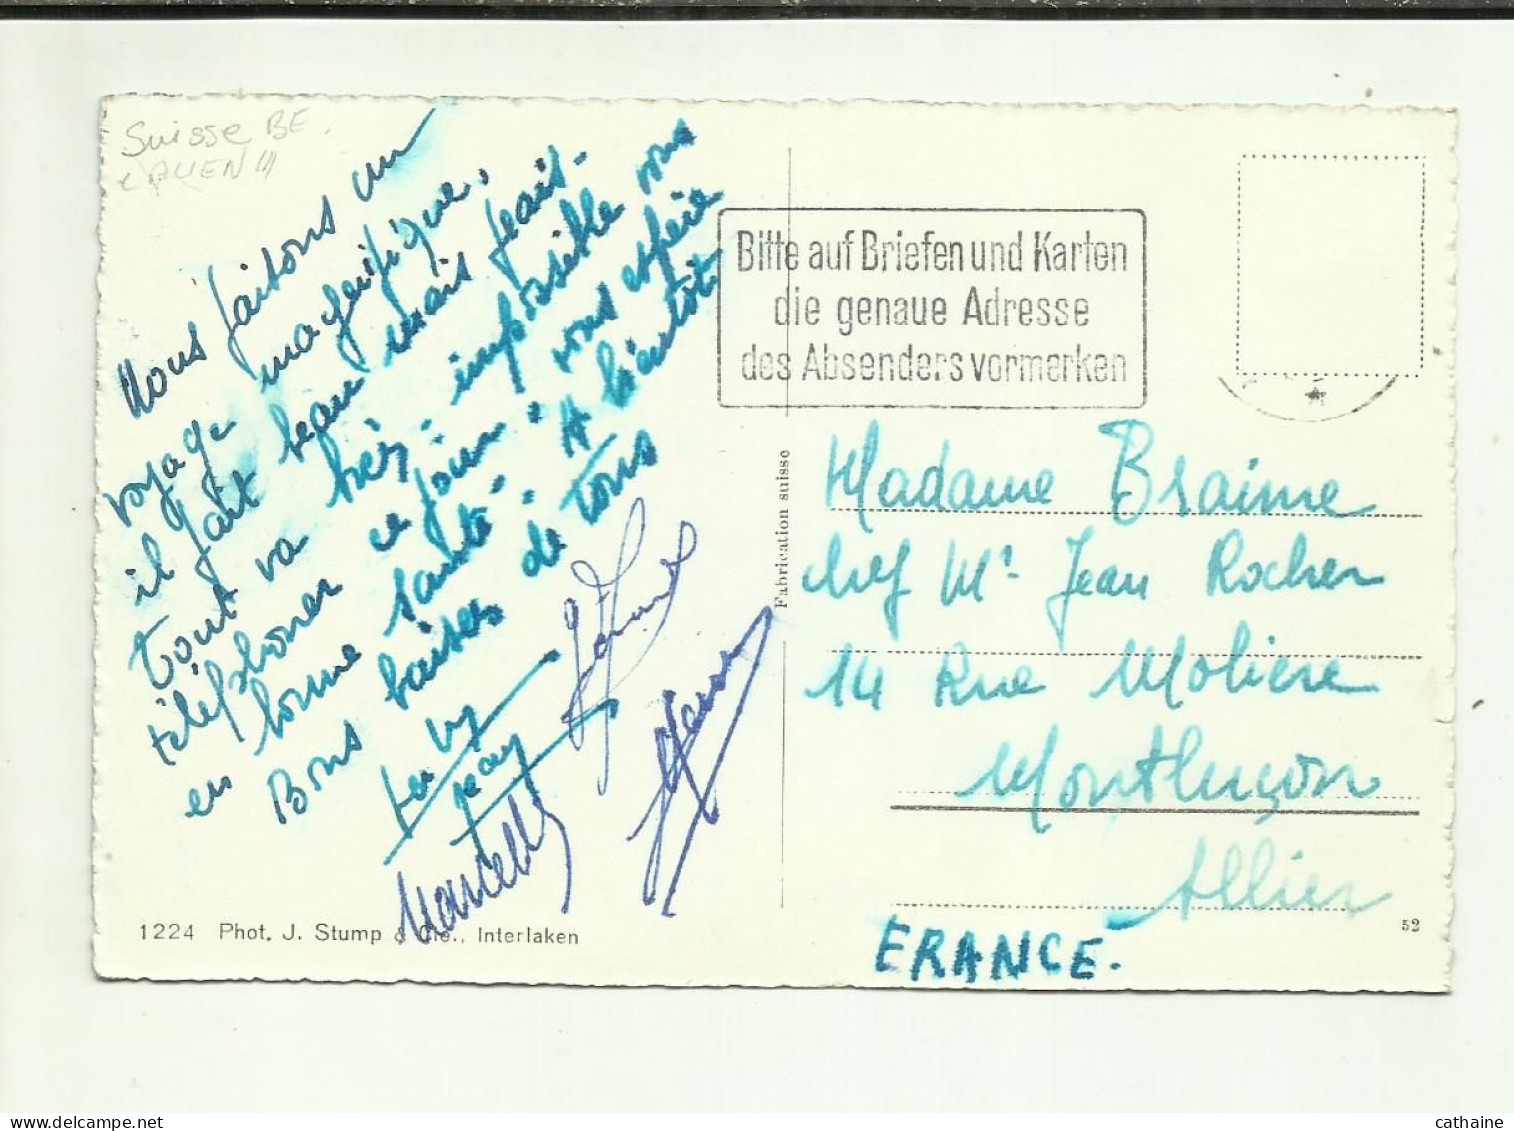 Suisse BE.
Nous faisons un
voyage magnifique,
il fait beau mais frais.
tout va bien. impossible vous
téléphoner ce jour. vous espère
en bonne santé. A bientôt
Bons baisers de tous
Jean
Marcelle
1224 Phot. J. Stump & Cie., Interlaken
Fabrication suisse
Bitte auf Briefen und Karten
die genaue Adresse
des Absenders vormerken
Madame Braime
chez Mr. Jean Rocher
14 Rue Molière
Montluçon
Allier
FRANCE.
52
cathaine